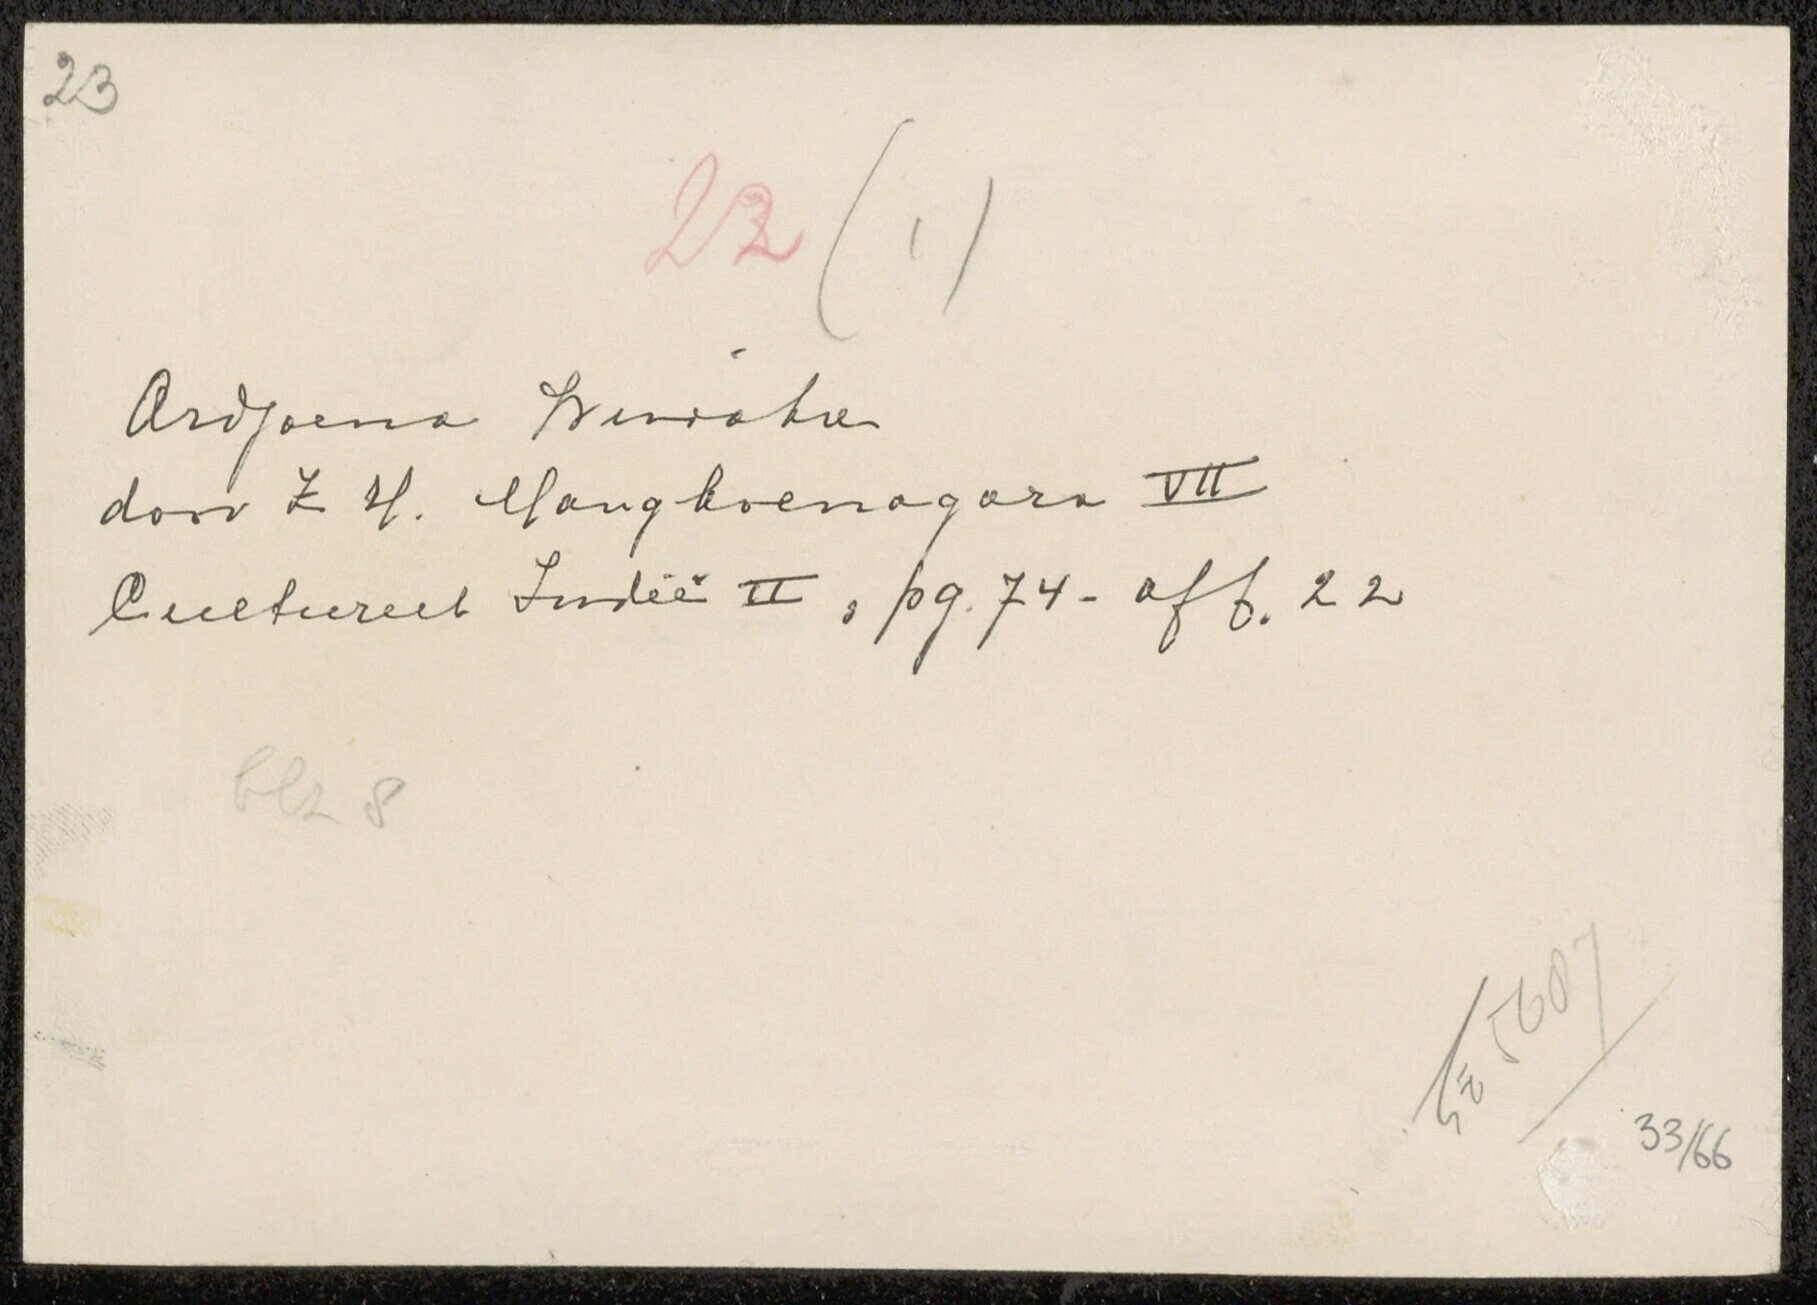 23
23 (1)
Ardjoena Wiwaha
door Z H. Mangkoenagara VII
Cultureel Indië II, pg. 74 - aff. 22
blz 8
5607
33/66